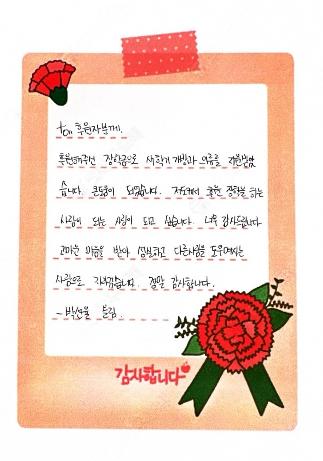 to. 후원자분께.
후원해주신 장학금으로 새학기 가방과 의류를 구매했었
습니다. 큰도움이 되었습니다. 저도커서 좋은 영향을 주는
사람이 되는 사람이 되고 싶습니다. 너무 감사드립니다
고마운 마음을 받아 성실하고 다른사람을 도우며사는
사람으로 자라겠습니다. 정말 감사합니다.
드림
감사합니다